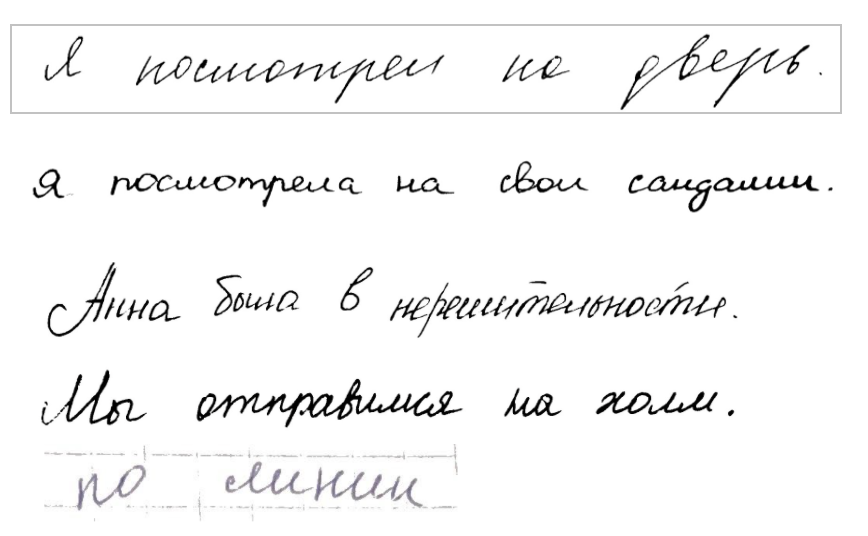 Я посмотрел на дверь.
Я посмотрела на свои сандалии.
Анна была в нерешительности.
Мы отправимся на холм.
по линии